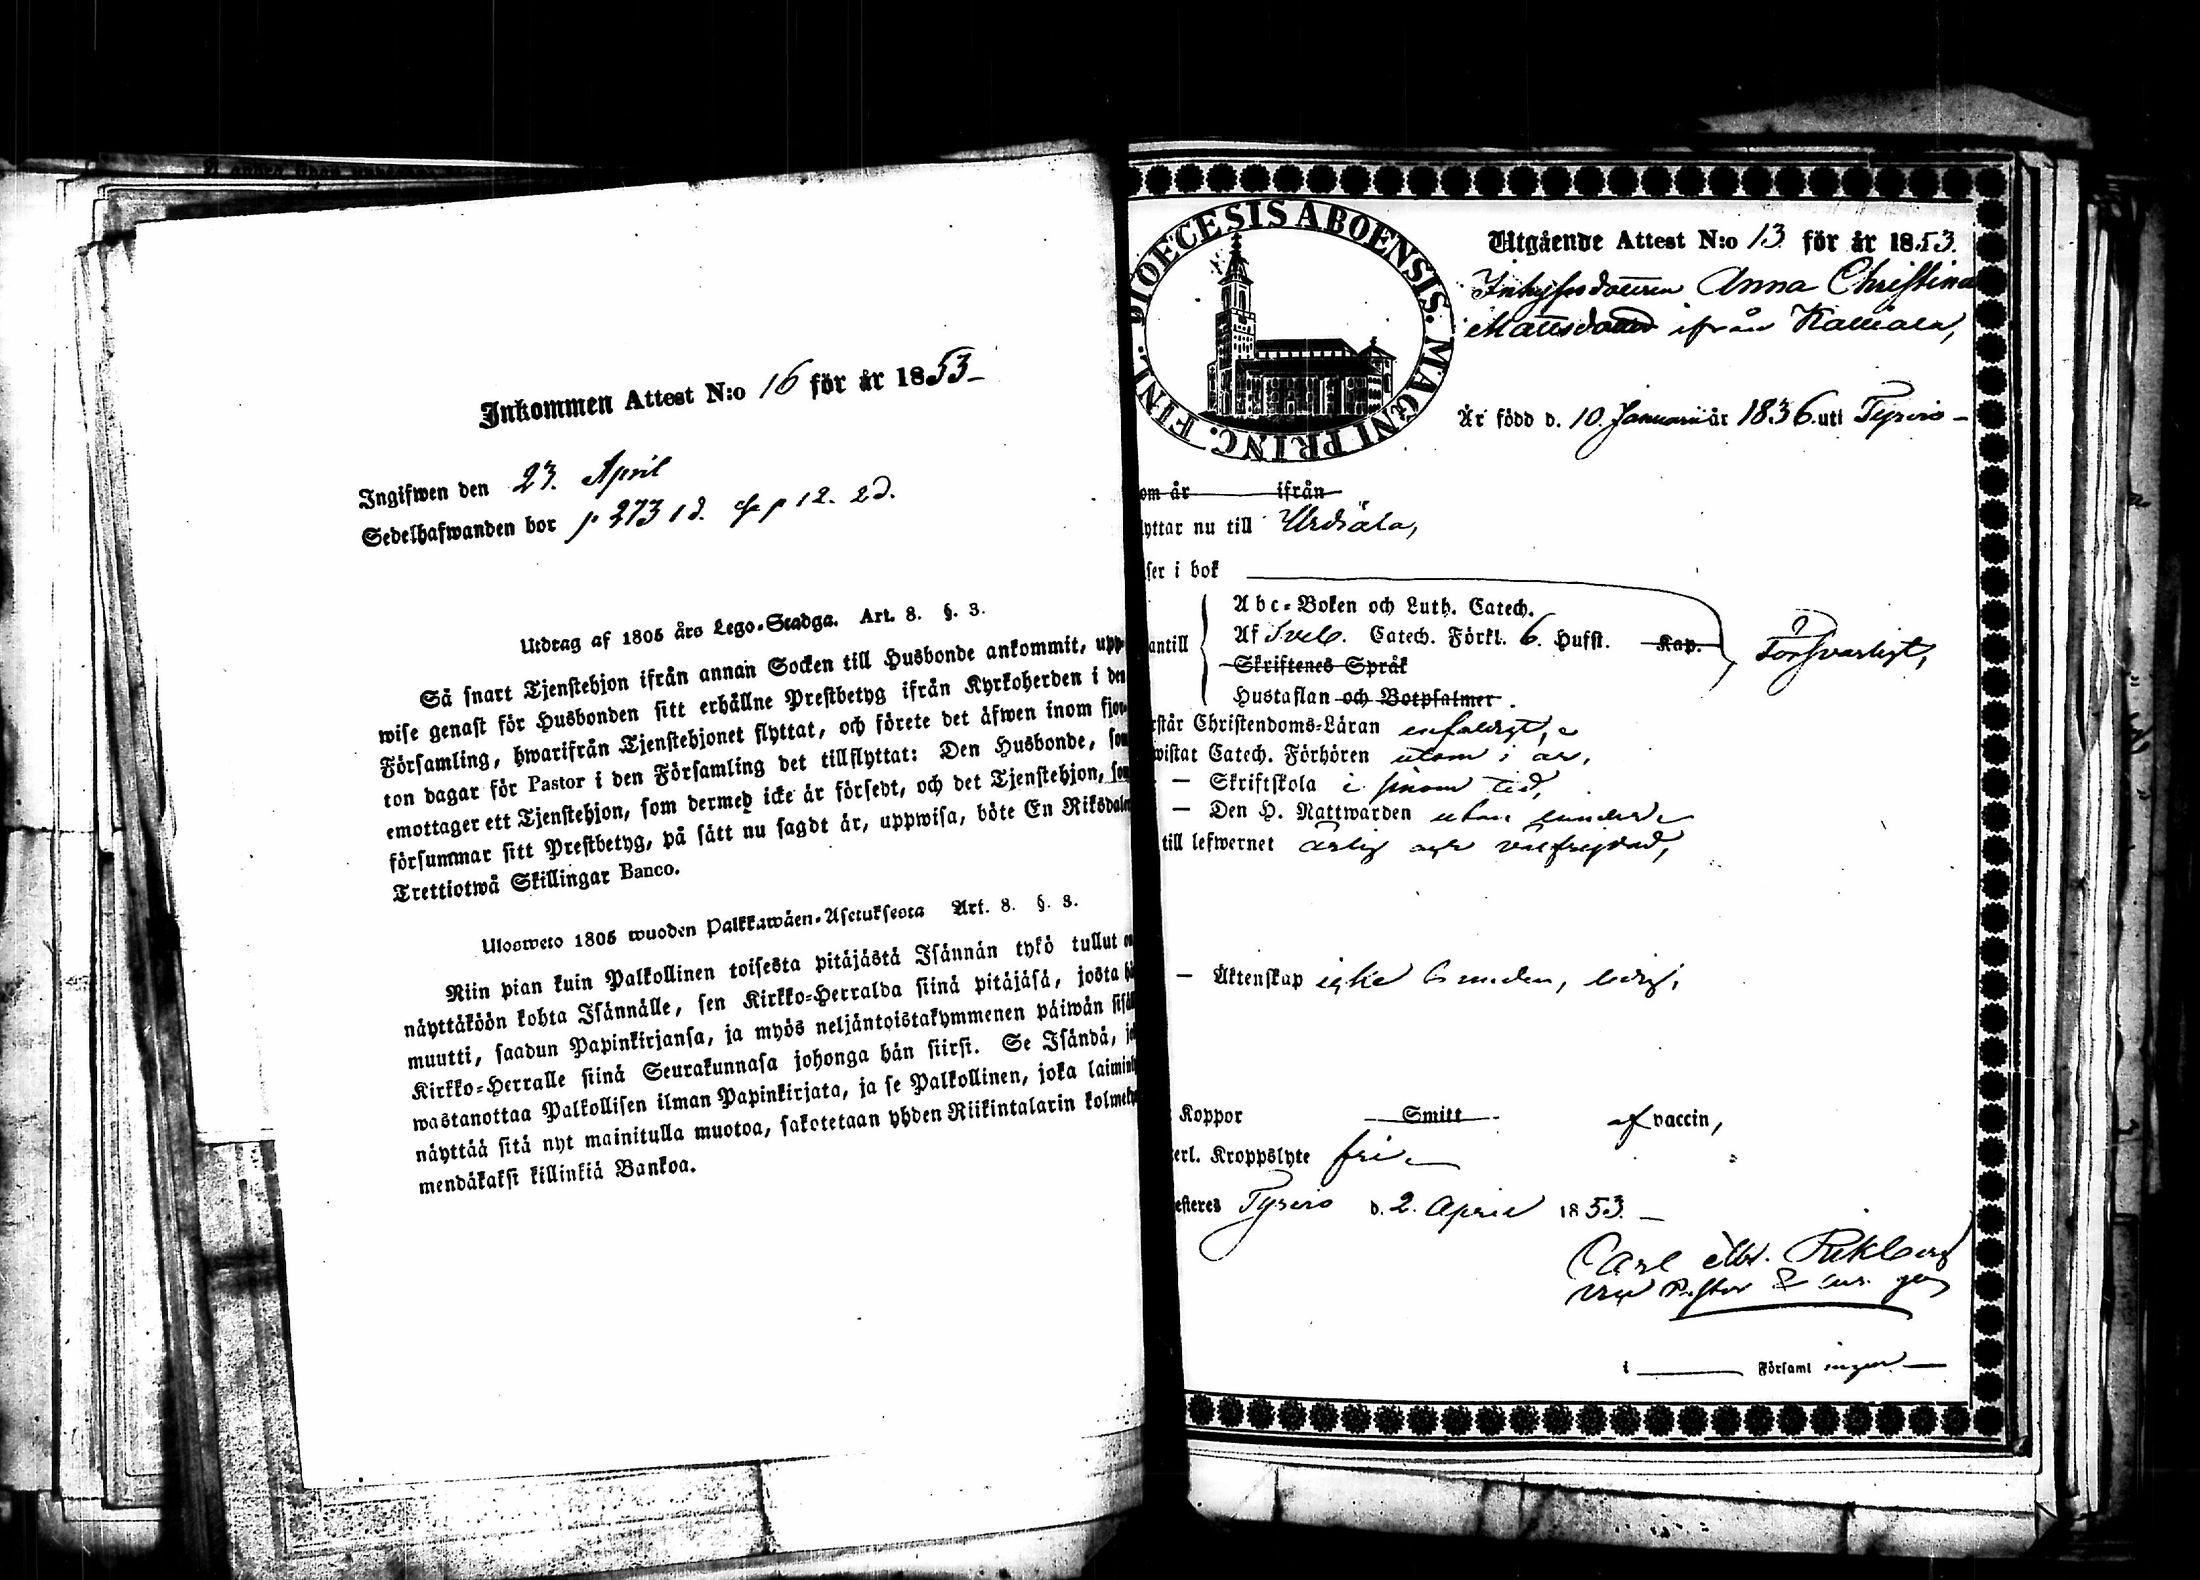 Inkommen Attest N:o 16 för år 1853
Ingifwen den 23. April
Sedelhafwanden bor p 273 1 d. p 12. 2d.
Utdrag af 1805 års Lego-Stadga. Art. 8. §. 3.
Så snart Tjenstehjon ifrån annan Socken till Husbonde ankommit, upp-
wise genast för Husbonden sitt erhållne Prestbetyg ifrån Kyrkoherden i den
Församling, hwarifrån Tjenstehjonet flyttat, och förete det äfwen inom fjor-
ton dagar för Pastor i den Församling det tillflyttat: Den Husbonde, som
emottager ett Tjenstehjon, som dermed icke är försedt, och det Tjenstehjon, som
försummar sitt Prestbetyg, på sätt nu sagdt är, uppwisa, böte En Riksdaler
Trettiotwå Skillingar Banco.
Ulosweto 1805 wuoden Palkkawäen-Asetuksesta Art. 8. §. 3.
Niin pian kuin Palkollinen toisesta pitäjästä Isännän tykö tullut on
näyttäköön kohta Isännälle, sen Kirkko-Herralda siinä pitäjäsä, josta hä
muutti, saadun Papinkirjansa, ja myös neljäntoistakymmenen päiwän sisäl
Kirkko-Herralle siinä Seurakunnasa johonga hän siirsi. Se Isändä, jo
wastanottaa Palkollisen ilman Papinkirjata, ja se Palkollinen, joka laimin
näyttää sitä nyt mainitulla muotoa, sakotetaan yhden Riikintalarin kolmeky
mendäkaksi killinkiä Bankoa.
DIOECESIS ABOENSIS. MAGNI PRINC. FINL.
Utgående Attest N:o 13 för år 1853.
Inhysesdottren Anna Christina
Mattsdotter ifrån Kalliala,
Är född d. 10. Januari år 1836. uti Tyrvis
om år ifrån
lyttar nu till Urdiala,
ser i bok
Abc-Boken och Luth. Catech.
antill Af Sveb. Catech. Förkl. 6. Hufst. Kap. Försvarligt,
Skriftenes Språk
Hustaflan och Botpsalmer.
rstår Christendoms-Läran enfaldigt,
wistat Catech. Förhören utom i år,
— Skriftskola i sinom tid,
— Den H. Nattwarden utan hinder
till lefwernet ärlig och välfrejdad,
— Äktenskap icke bunden, ledig,
Koppor Smitt af vaccin,
erl. Kroppslyte fri
esteres Tyrvis d. 2. April 1853.
Carl
Vice Pastor
i Församl ingen